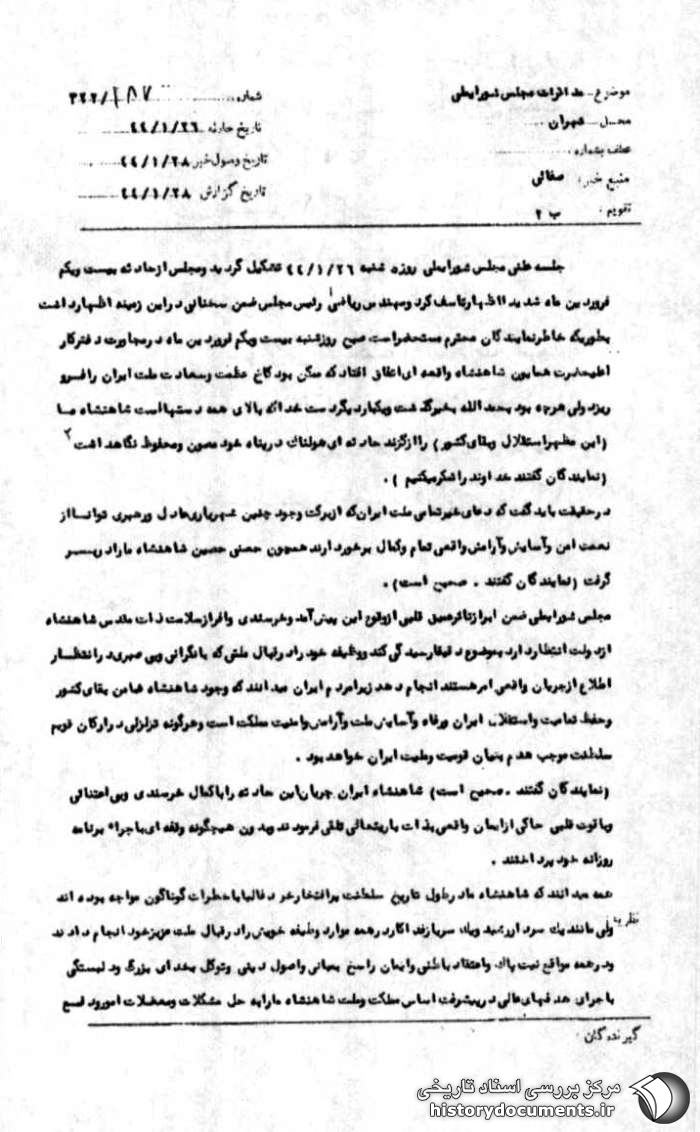 موضوع: مذاکرات مجلس شورایملی
شماره: ۳۲۲/۱۵۷
محل: تهران
تاریخ حادثه ۴۴/۱/۲۶
عطف بشماره:
تاریخ وصول خبر ۴۴/۱/۲۸
منبع خبر: صفائی
تاریخ گزارش ۴۴/۱/۲۸
تقویم: ب ۲
جلسه علنی مجلس شورایملی روز شنبه ۴۴/۱/۲۶ تشکیل گردید ومجلس ازحادثه بیست ویکم
فروردین ماه شدیدا اظهارتاسف کرد ومهندس ریاضی رئیس مجلس ضمن سخنانی دراین زمینه اظهارداشت
بطوریکه خاطرنمایندگان محترم مستحضراست صبح روزشنبه بیست ویکم فروردین ماه درمجاورت دفترکار
اعلیحضرت همایون شاهنشاه واقعه ای اتفاق افتاد که ممکن بود کاخ عظمت وسعادت ملت ایران رافرو
ریزد ولی هرچه بود بحمدالله بخیرگذشت ویکباردیگردست خداکه بالای همه دستهااست شاهنشاه ما
(این مظهراستقلال وبقای کشور) راازگزند حادثه ای هولناک درپناه خود مصون ومحفوظ نگاهداشت
(نمایندگان گفتند خداوند راشکرمیکنیم).
درحقیقت باید گفت که دعای خیرتمامی ملت ایران که ازبرکت وجود چنین شهریاری عادل ورهبری توانا از
نعمت امن وآسایش وآرامش واقعی تمام وکمال برخوردارند همچون حصنی حصین شاهنشاه ماراد ربر
گرفت (نمایندگان گفتند . صحیح است).
مجلس شورایملی ضمن ابرازتاثرعمیق قلبی ازوقوع این پیش آمد وخرسندی وافرازسلامت ذات مقدس شاهنشاه
ازدولت انتظاردارد بموضوع دقیقارسیدگی کند ووظیفه خود رادرقبال ملتی که بانگرانی وبی صبری درانتظار
اطلاع ازجریان واقعی امرهستند انجام دهد زیرامردم ایران میدانند که وجود شاهنشاه ضامن بقای کشور
وحفظ تمامیت واستقلال ایران ورفاه وآسایش ملت وآرامش وامنیت مملکت است وهرگونه تزلزلی درارکان قویم
سلطنت موجب هدم بنیان قومیت وملیت ایران خواهد بود .
(نمایندگان گفتند . صحیح است) شاهنشاه ایران جریان این حادثه راباکمال خرسندی وبی اعتنائی
وباقوت قلبی حاکی ازایمان واقعی بذات باریتعالی تلقی فرمودند وبدون هیچگونه وقفه ای باجراء برنامه
روزانه خود پرداختند .
همه میدانند که شاهنشاه مادرطول تاریخ سلطنت پرافتخارخود غالباباخطرات گوناگون مواجه بوده اند
ولی مانند یک سرد ارشید ویک سربازفداکاردرهمه موارد وظیفه خویش رادرقبال ملت عزیزخود انجام دادند
نظریه
ودرهمه مواقع نیت پاک واعتقاد باطنی وایمان راسخ بمبانی واصول دینی وتوکل بخدای بزرگ ودلبستگی
باجرای هدفهای عالی درپیشرفت اساس مملکت وملت شاهنشاه مارابه حل مشکلات ومعضلات امورود فع
گیرندگان:
مرکز بررسی اسناد تاریخی
historydocuments.ir